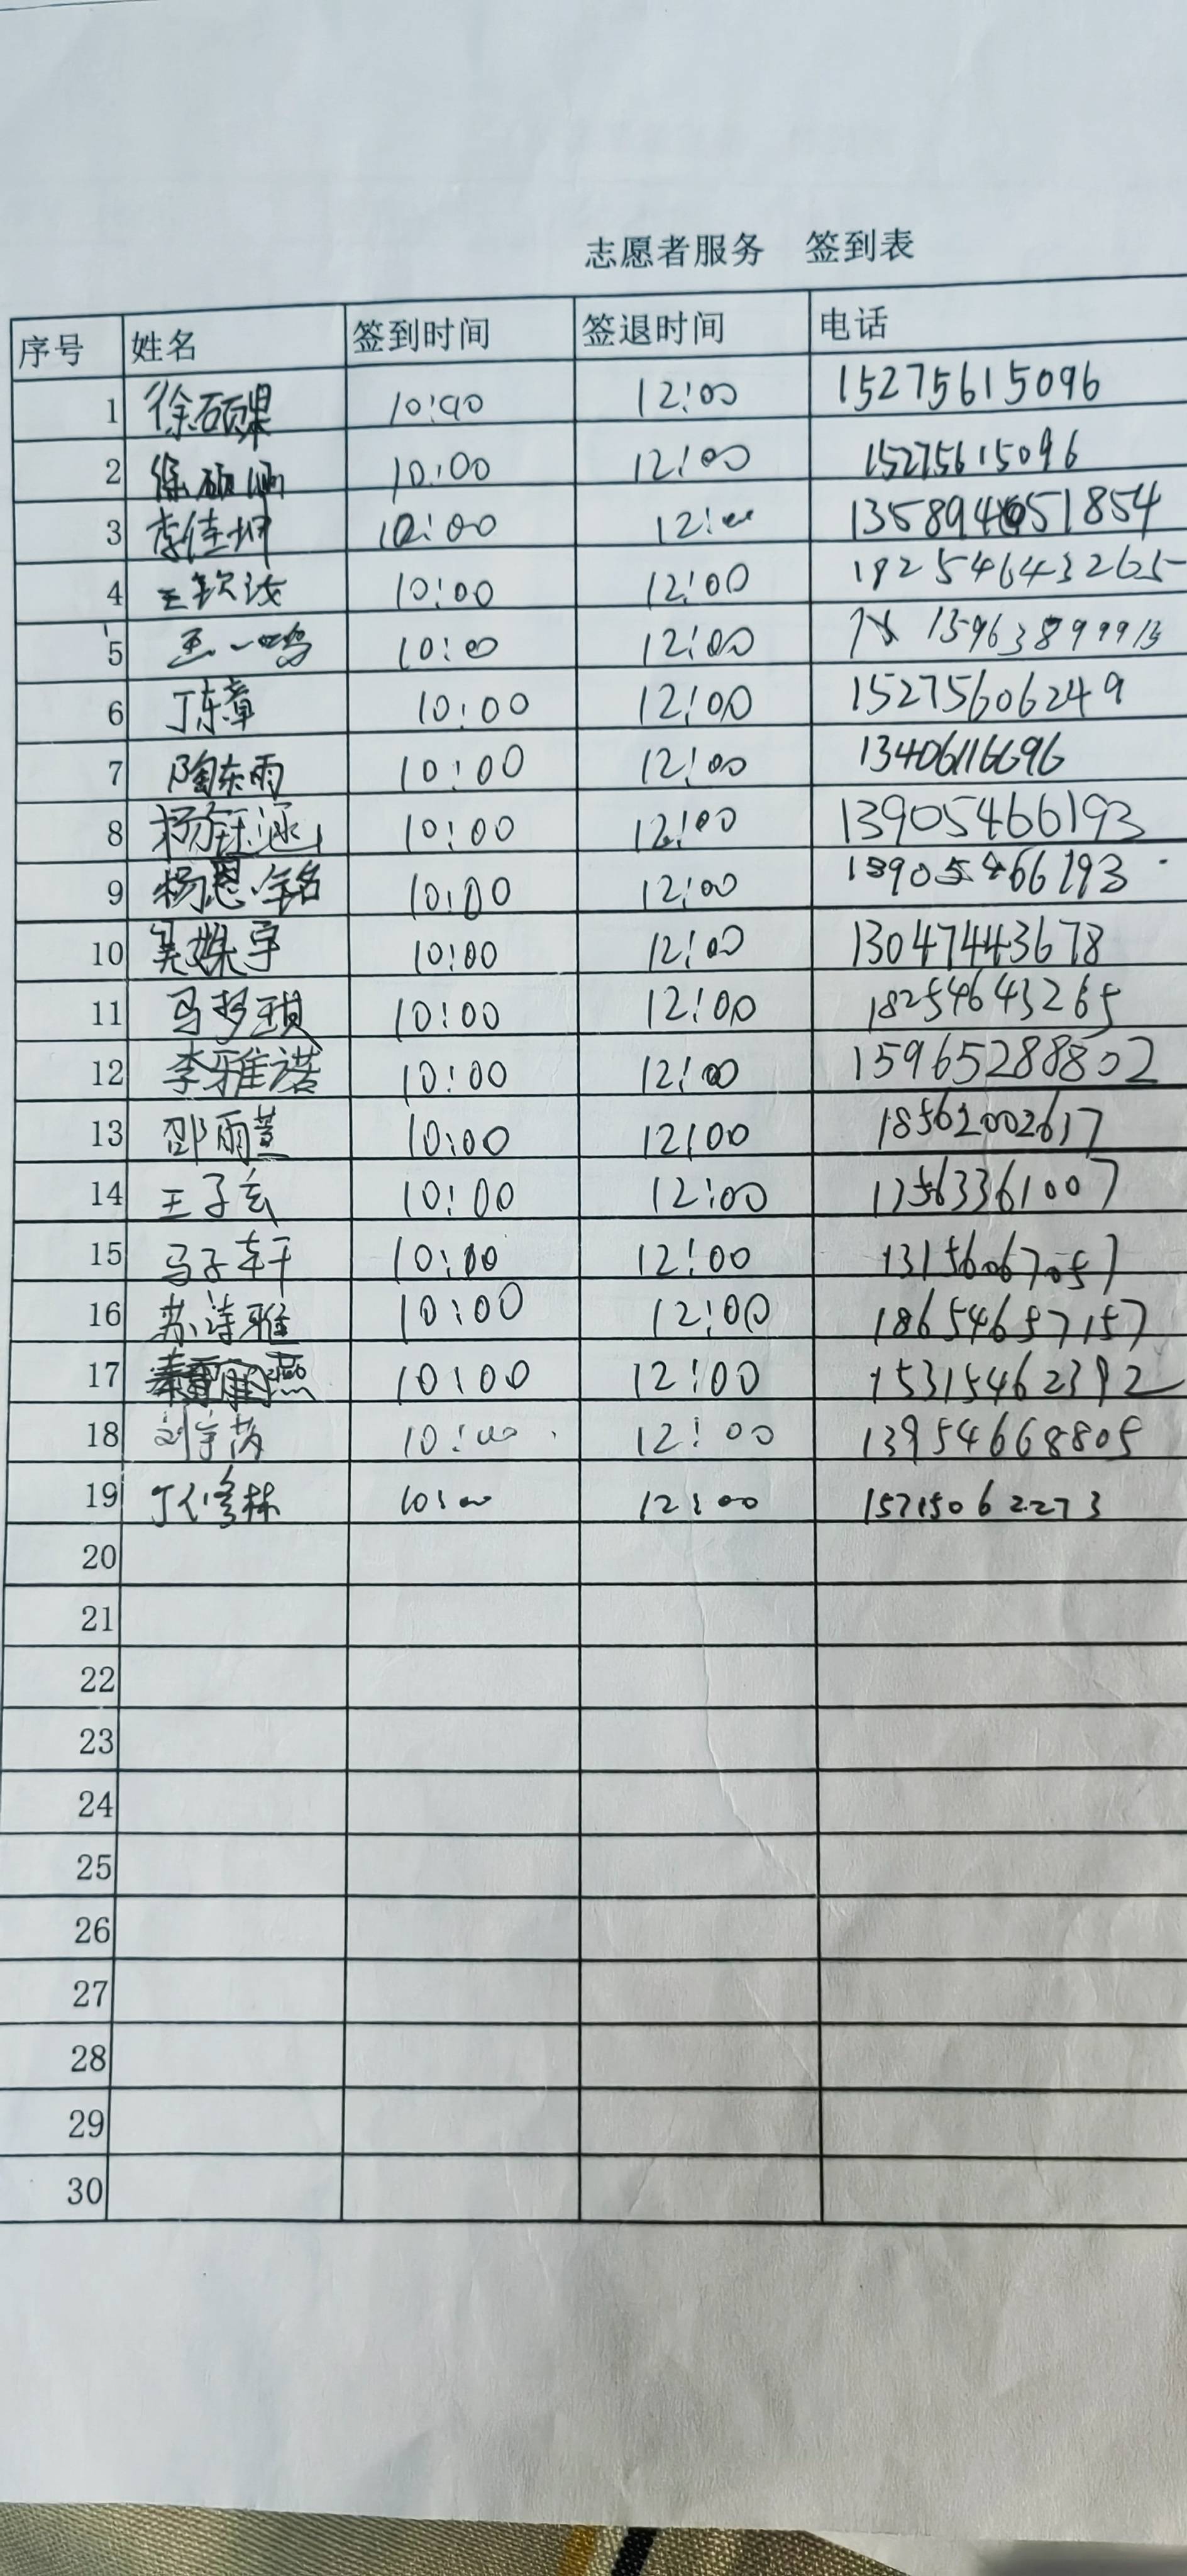 志愿者服务 签到表
序号 姓名 签到时间 签退时间 电话
1 徐硕果 10:00 12:00 15275615096
2 徐硕涵 10:00 12:00 15275615096
3 李佳坤 10:00 12:00
4 王钦 10:00 12:00
5 王一鸣 10:00 12:00
6 丁东章 10:00 12:00 15275606249
7 陶东雨 10:00 12:00 13406116696
8 杨钰涵 10:00 12:00 13905466193
9 杨恩铭 10:00 12:00 13905466193
10 吴姝宇 10:00 12:00 13047443678
11 马梦琪 10:00 12:00 18254643265
12 李雅诺 10:00 12:00 15965288802
13 邵雨萱 10:00 12:00 18562002617
14 王子玄 10:00 12:00 17563361007
15 马子轩 10:00 12:00 13156067057
16 苏诗雅 10:00 12:00 18654657157
17 燕 10:00 12:00 15315462392
18 刘宇芮 10:00 12:00 13954668805
19 丁修林 10:00 12:00 15715062273
20
21
22
23
24
25
26
27
28
29
30